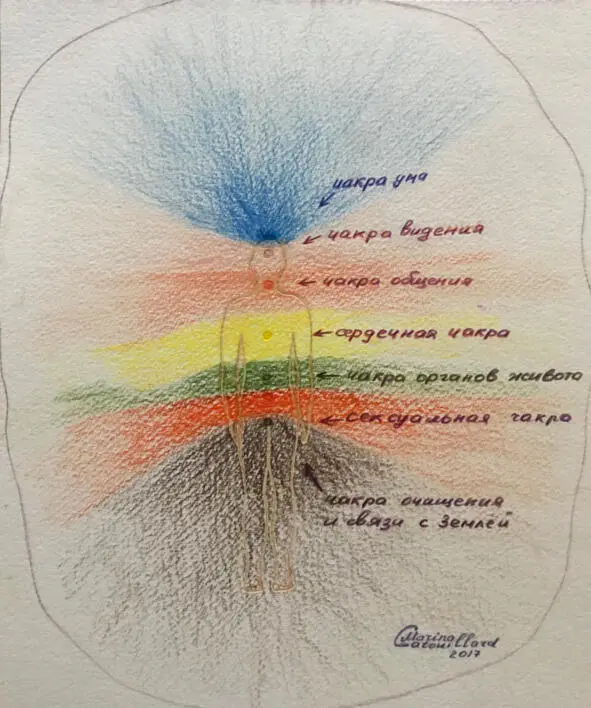 чакра ума
чакра видения
чакра общения
сердечная чакра
чакра органов живота
сексуальная чакра
чакра очищения
и связи с Землей
Marina
2017